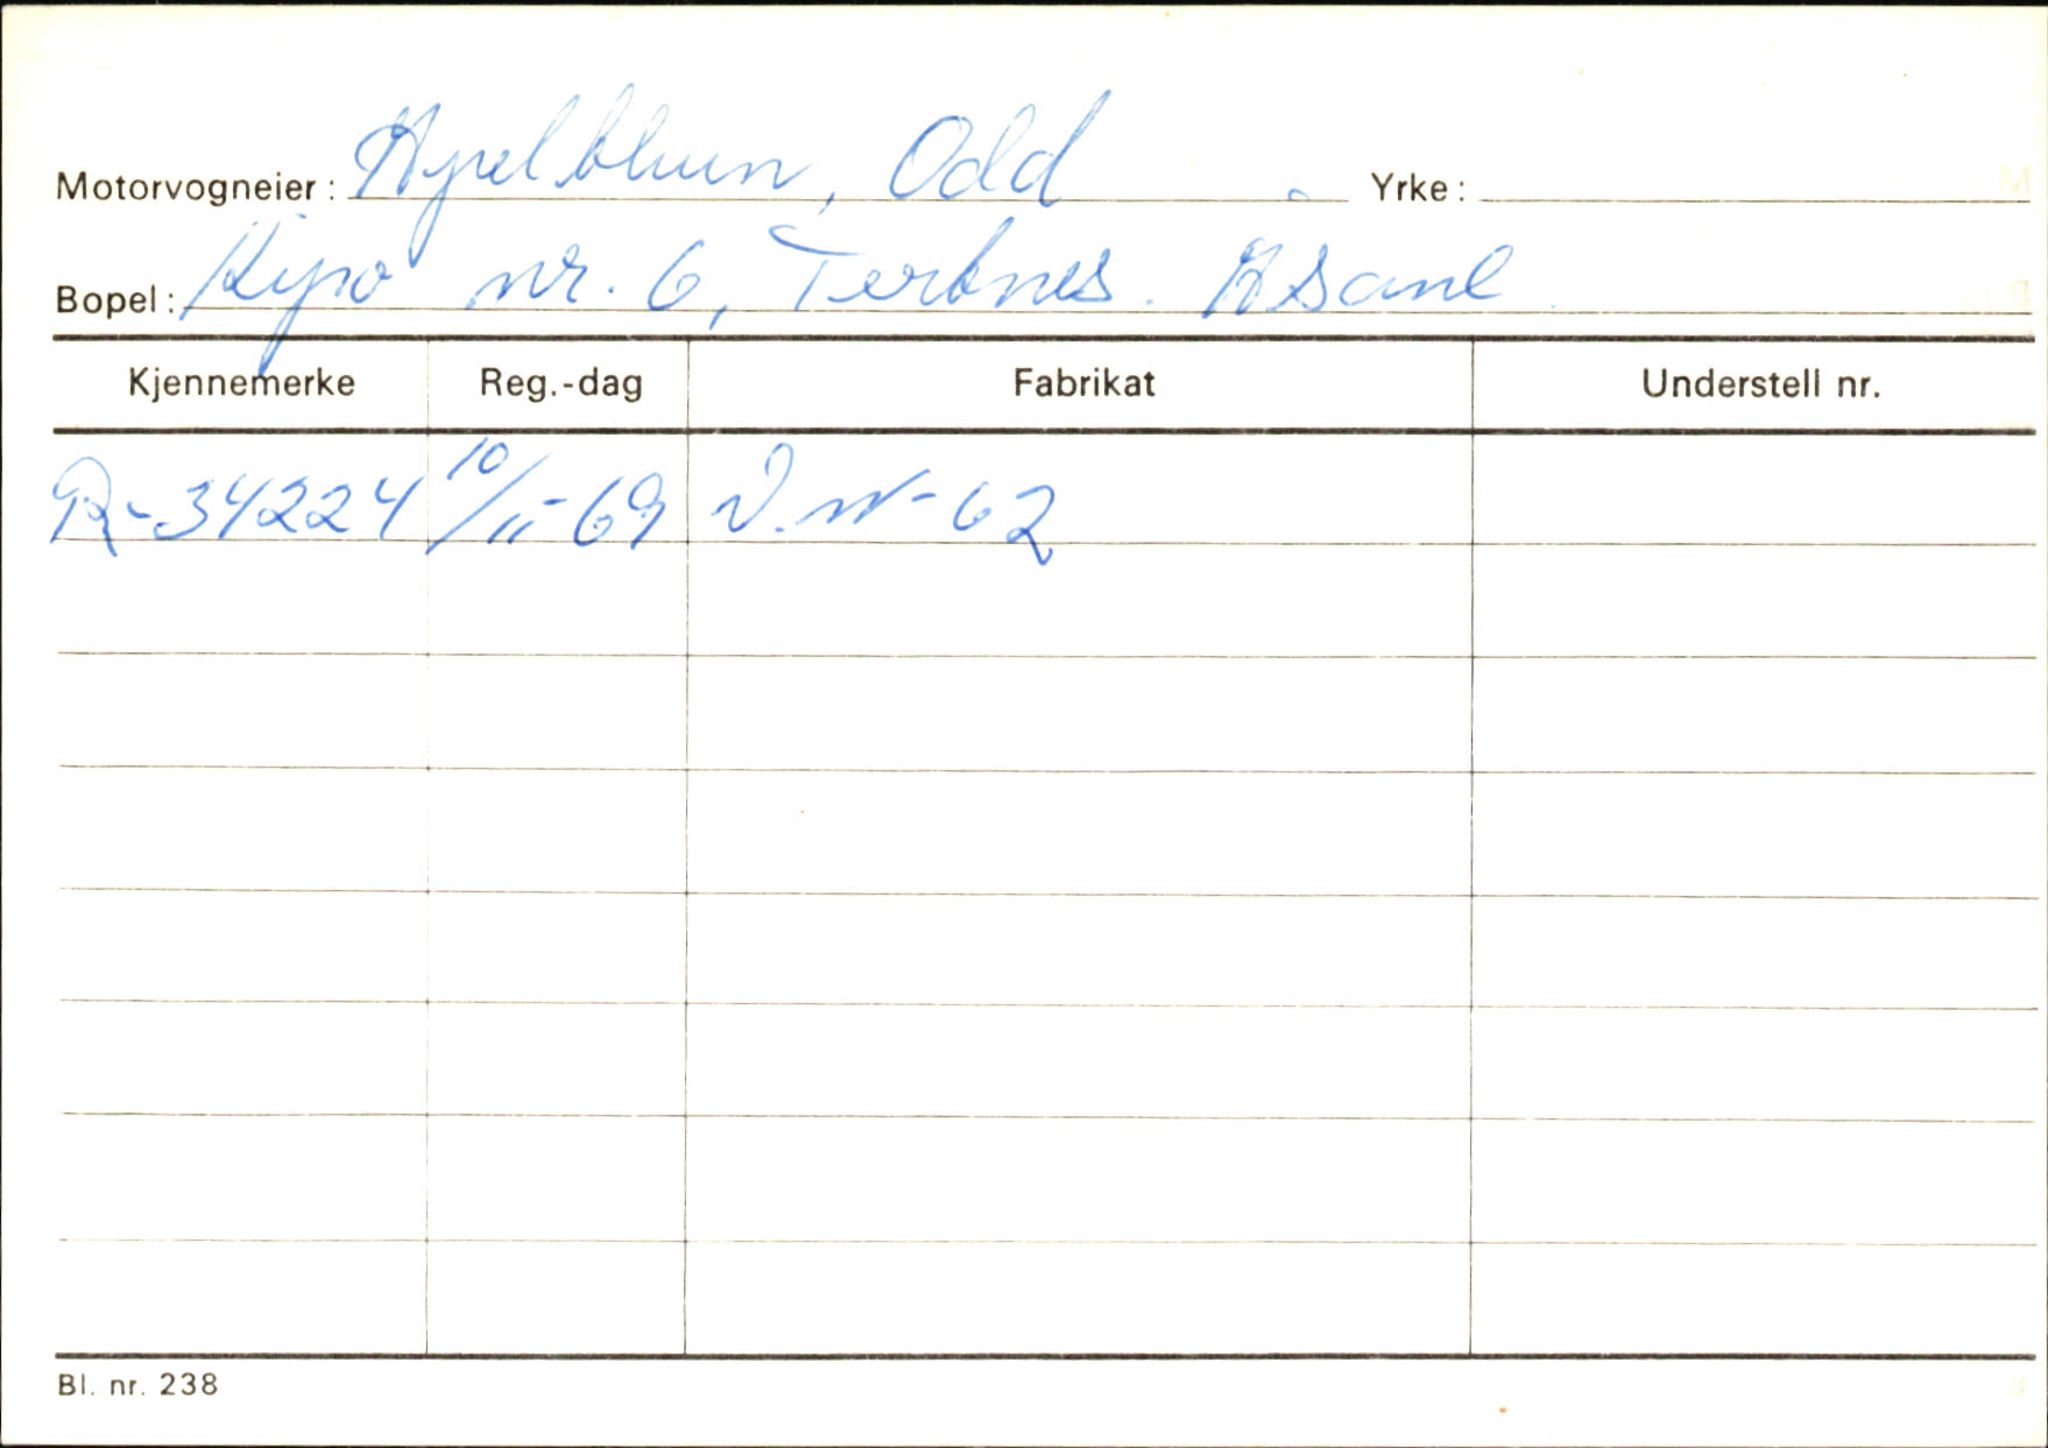 Motorvogneier: Hjrelblum, Odd Yrke:
Bopel: nr. 6, Tertnes. Åsane
Kjennemerke Reg.-dag Fabrikat Understell nr.
R-34224 10/11-69 V.W-62
Bl. nr. 238